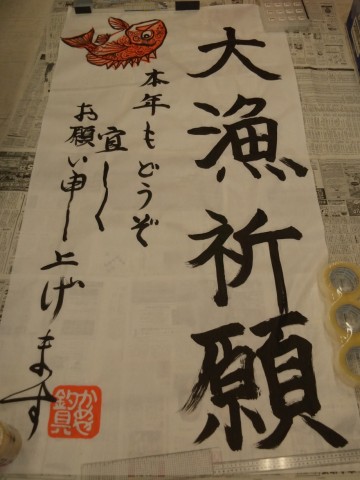 大漁祈願
本年もどうぞ
宜しく
お願い申し上げます
かめや
釣具